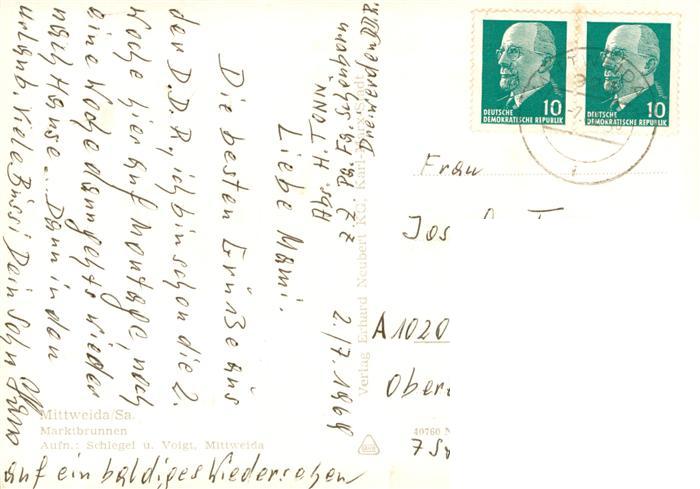 Abs. H. Tonn
z Z Pa. Fa. Schönbau
Dreiwerden D.D.R.
2./7. 1969
Liebe Mami.
Die besten Grüße aus
der D.D.R, ich bin schon die 2.
Woche hier auf Montage, noch
eine Woche dann gehts wieder
nach Hause... Dann in den
Urlaub. Viele Bussi Dein Sohn Hans
auf ein baldiges Wiedersehen
Mittweida/Sa.
Marktbrunnen
Aufn.: Schlegel u. Voigt, Mittweida
Verlag Erhard Neubert KG, Karl-Marx-Stadt
40760 N
10
DEUTSCHE
DEMOKRATISCHE REPUBLIK
10
DEUTSCHE
DEMOKRATISCHE REPUBLIK
Frau
Jos
A 1020
Ober